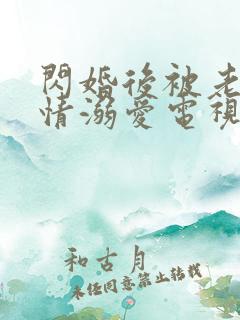 閃婚後被老
情溺愛電視
和古月
未经同意禁止转载